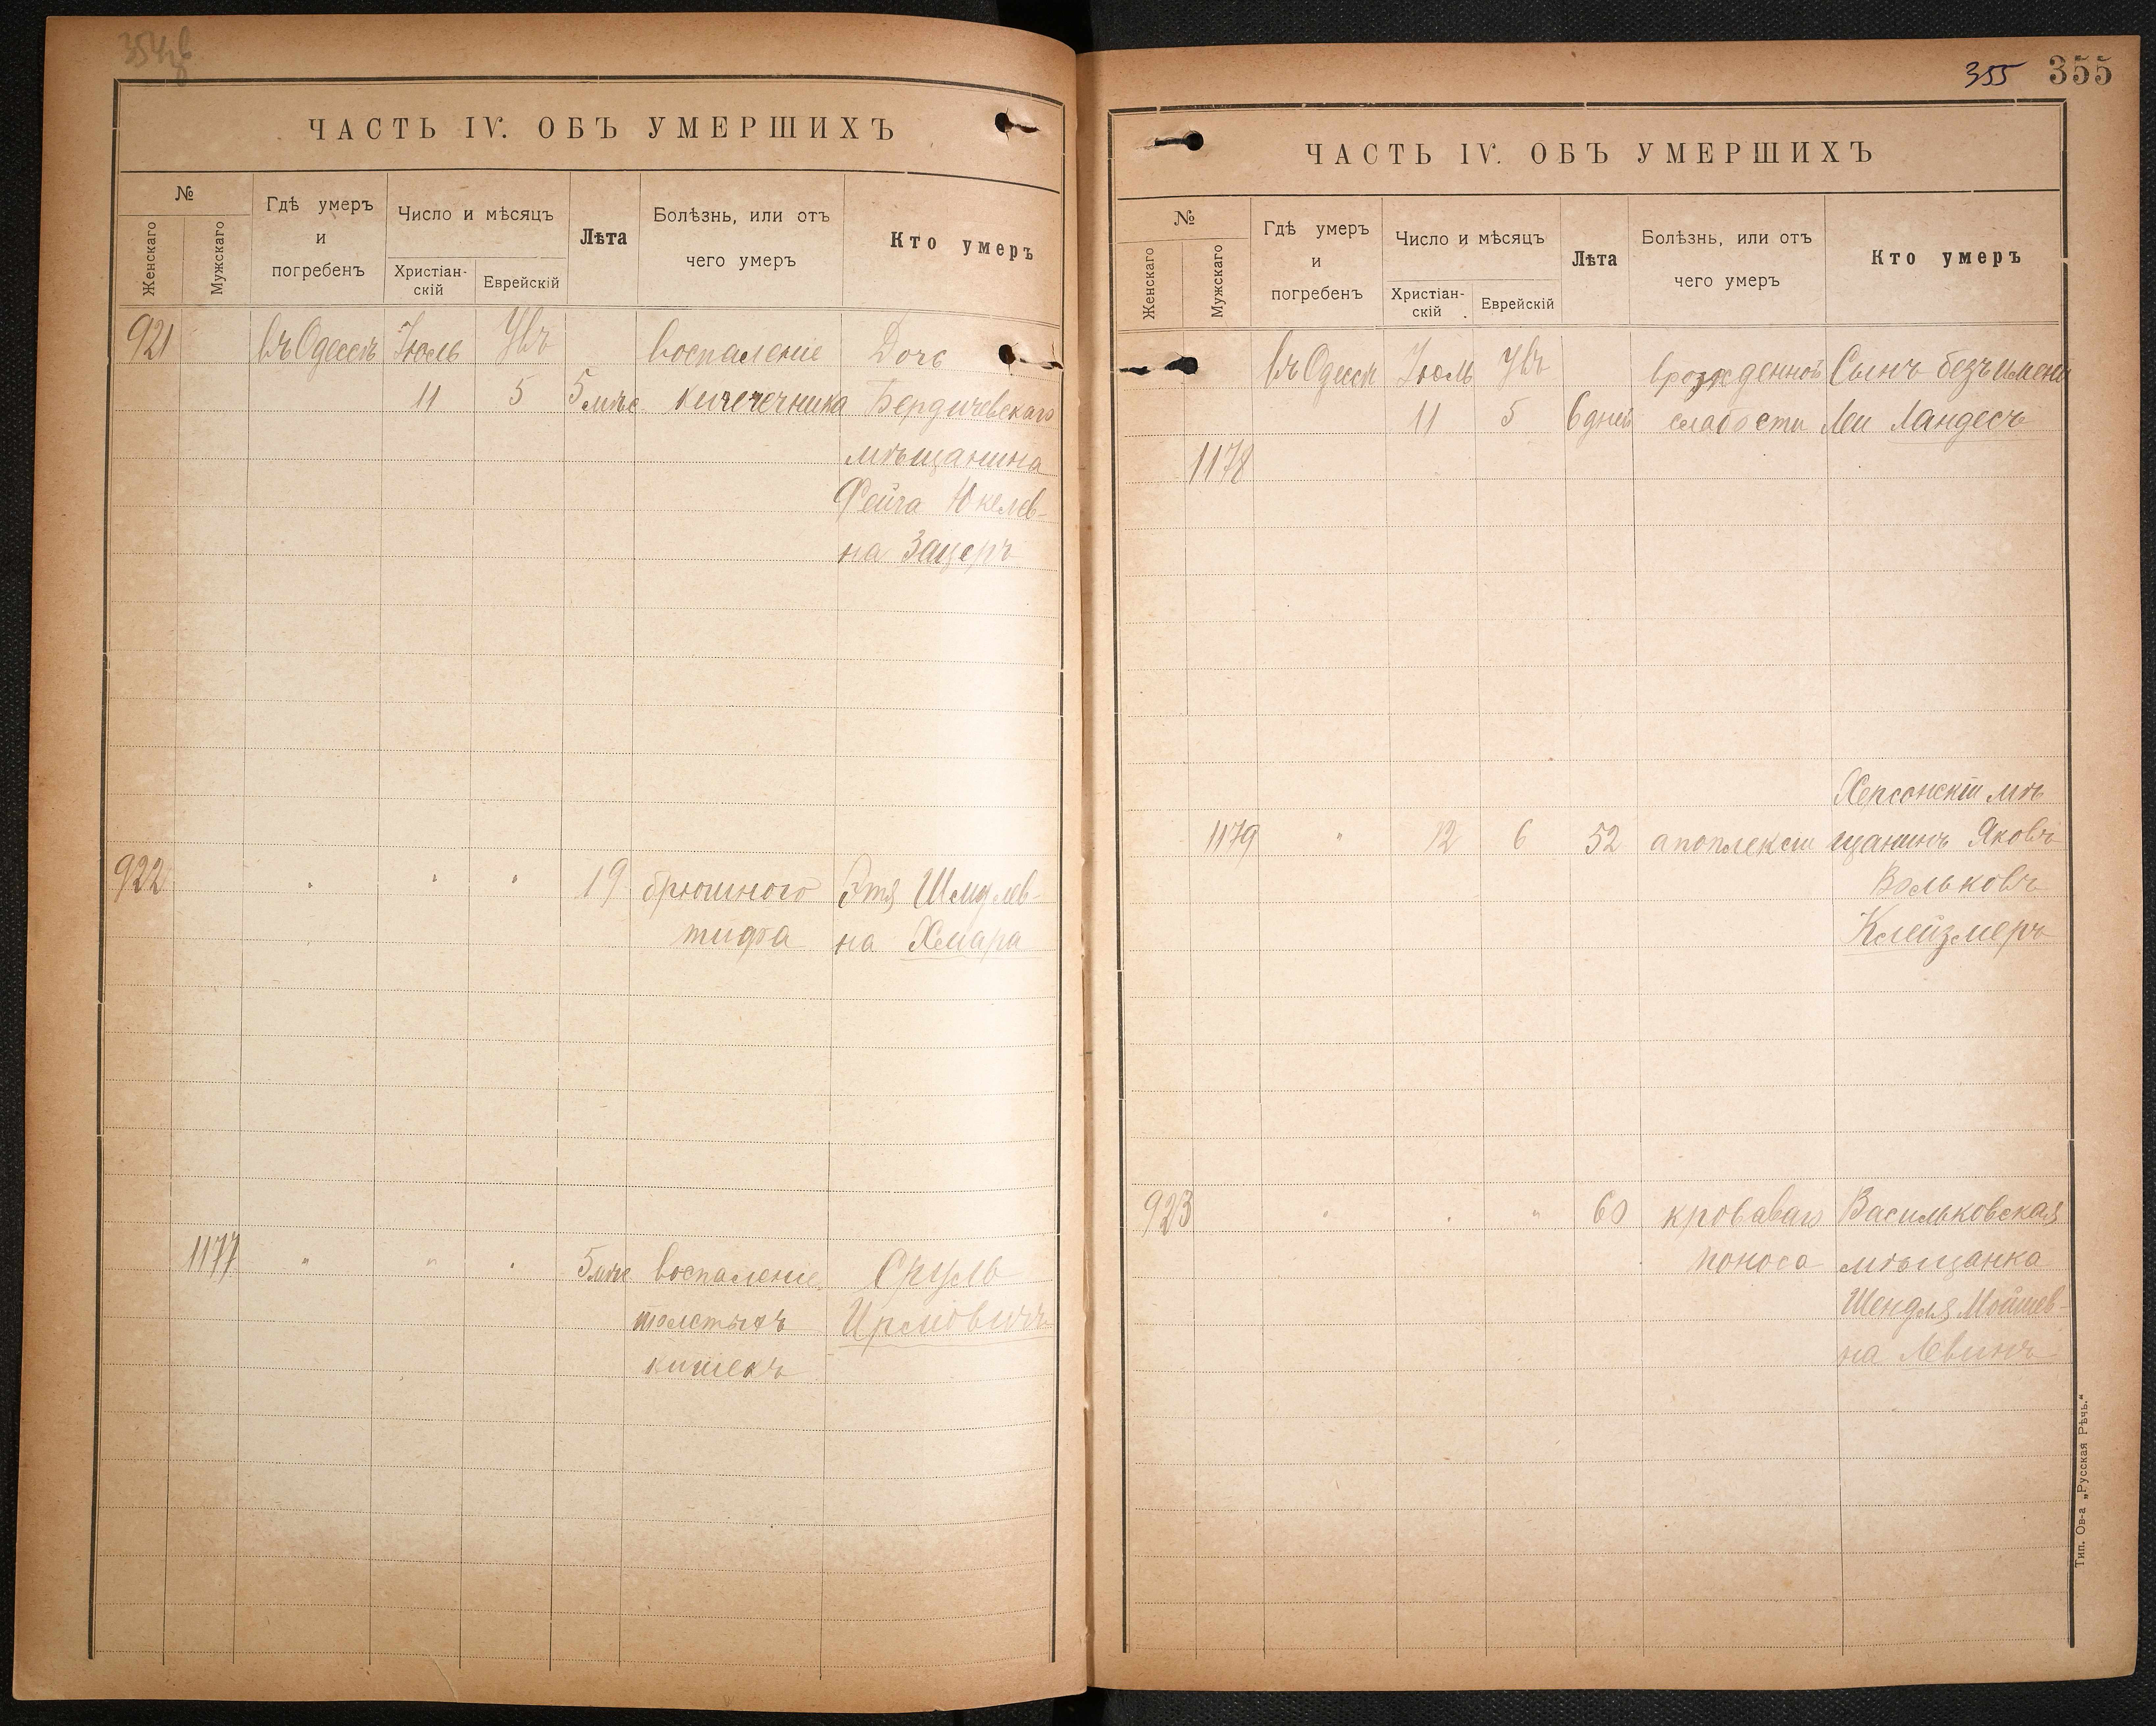 ЧАСТЬ IV. ОБЪ УМЕРШИХЪ
№
Женскаго
Мужскаго
Гдѣ умеръ
и
погребенъ
Число и мѣсяцъ
Христіан-
скій
Еврейскій
Лѣта
Болѣзнь, или отъ
чего умеръ
Кто умеръ
921 въ Одессѣ Іюль воспаленіе Дочь
11 5 5 мѣс Бердичевскаго
мѣщанина
на Зацеръ
922 " " " 19 брюшного Этя Шмулев-
тифа на Хмара
1177 " " " 5 мѣс воспаленіе Сруль
толстыхъ
кишекъ
355 355
ЧАСТЬ IV. ОБЪ УМЕРШИХЪ
№
Женскаго
Мужскаго
Гдѣ умеръ
и
погребенъ
Число и мѣсяцъ
Христіан-
скій
Еврейскій
Лѣта
Болѣзнь, или отъ
чего умеръ
Кто умеръ
въ Одессѣ Іюль врожденной Сынъ безъ имени
11 5 6 дней слабости Леи Ландесъ
1178
Херсонскій мѣ
1179 " 12 6 52 апоплексіи щанинъ Яковъ
Вольковъ
Клейзмеръ
923 " " " 60 кроваваго Васильковская
поноса мѣщанка
Шендля Мойшев-
на Левинъ
Тип. Ов-а „Русская Рѣчь."